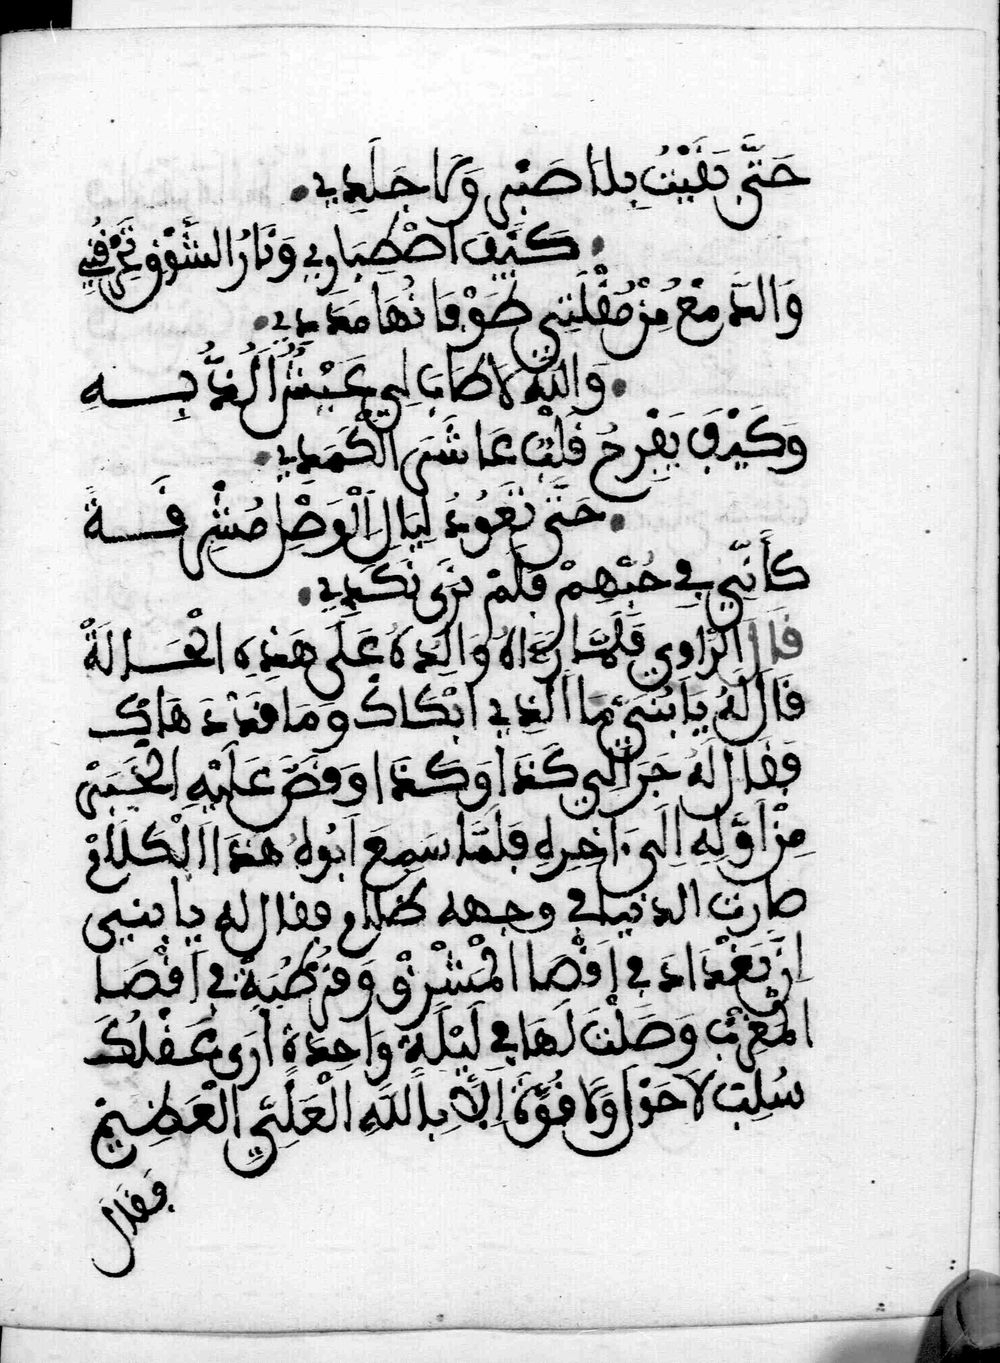 حَتَّى بَقَيْتُ بِلَا صَبْرٍ وَلَا جَلَدِي
كَيْفَ اصْطِبَارِي وَنَارُ الشَّوْقِ تَحْرِقُنِي
وَالدَّمْعُ مِنْ مُقْلَتِي طَوْفَانُهَا مَدَدِي
وَاللهِ لَا طَابَ لِي عَيْشٌ أَلُذُّ بِهِ
وَكَيْفَ يَفْرَحُ قَلْبٌ عَاشَى الْكَمَدِي
حَتَّى تَعُودُ لِيَالِ الْوَصْلِ مُشْرِقَةً
كَأَنَّنِي فِي حُبِّهِمْ فَلَمْ نَرَى نَكَدِي
قَالَ الرَّاوِي فَلَمَّا رَءَاهُ وَالِدَهُ عَلَى هَذِهِ الْحَالَةْ
قَالَ لَهُ يَا بُنَيَّ مَا الَّذِي ابْكَاكْ وَمَا قَدْ دَهَاكْ
فَقَالَ لَهُ جَرَا لِي كَذَا وَكَذَا وَقَصَّ عَلَيْهِ الْخَبَرْ
مِنْ اَوَّلِهِ اِلَى ءَاخِرِهِ فَلَمَّا سَمِعَ اَبُوهُ هَذَا الْكَلَامْ
صارت الدنيا في وجهه ظلام فقال له يا بنيي
اِنَّ بَغْدَادَ فِي اَقْصَا الْمَشْرِقْ وَقُرْطُبَةْ فِي اَقْصَا
الْمَغْرِبْ وَصَلْتَ لَهَا فِي لَيْلَةٍ وَاحِدَةٍ أَرَى عَقْلَكَ
سُلِبَ لَا حَوْلَ وَلَا قُوَّةَ اِلَّا بِاللهِ الْعَلِيِّ الْعَظِيمْ
فَقَالَ